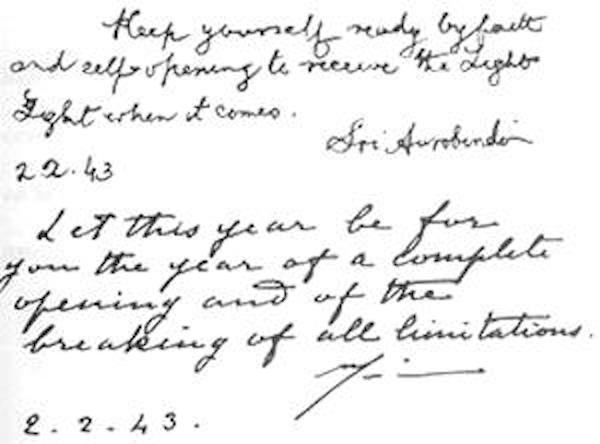 Keep yourself ready by faith
and self-opening to receive the Light
Light when it comes.
Sri Aurobindo
2.2.43
Let this year be for
you the year of a complete
opening and of the
breaking of all limitations.
2.2.43.